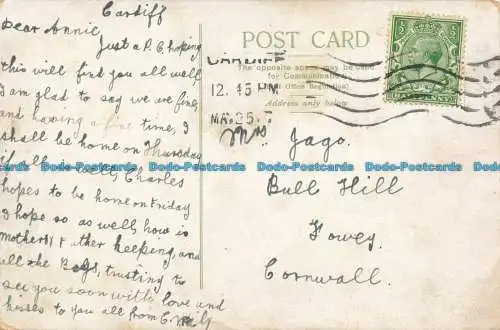 Cardiff
Dear Annie
Just a P.C hoping
this will find you all well
I am glad to say we are fine
and having a fine time, I
shall be home on Thursday
if all Charles
hopes to be home on Friday
I hope so as well how is
mother & keeping, and
all the Boys, trusting to
see you soon with love and
kisses to you all from
POST CARD
The opposite space may be used
for Communication
Address only below
CARDIFF
12.45 PM
Mrs Jago.
Bull Hill
Fowey.
Cornwall.
Dodo-Postcards Dodo-Postcards Dodo-Postcards Dodo-Postcards Dodo-Postcards